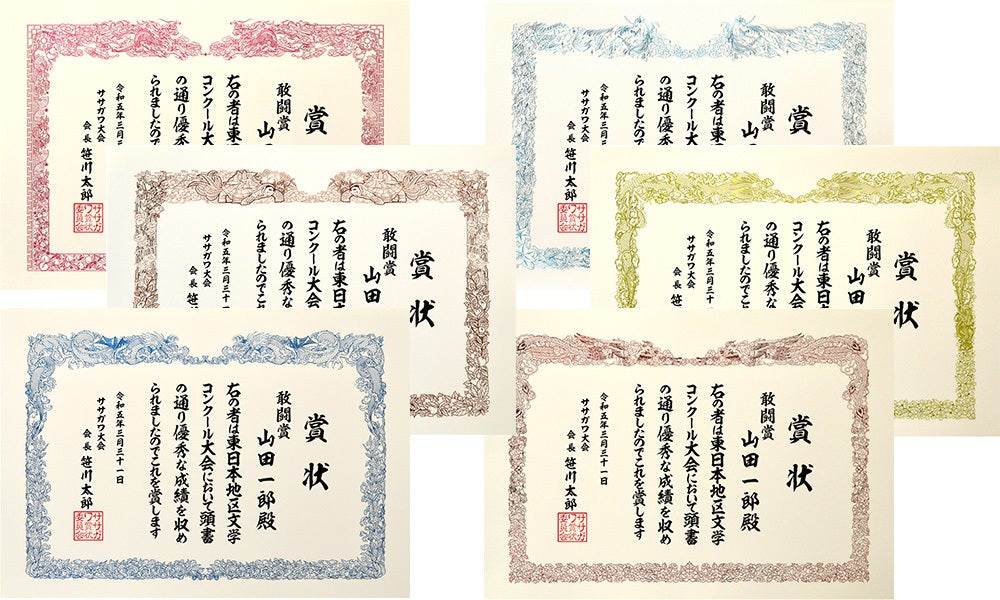 賞
敢闘賞
山
右の者は東
コンクール大
の通り優秀
られましたので
令和五年三月
ササガワ大会
会長 笹川太郎
ササガワ賞状委員会
賞
敢闘賞
山
右の者は東
コンクール大
の通り優秀
られましたので
令和五年三月
ササガワ大会
会長 笹川太郎
ササガワ賞状委員会
賞状
敢闘賞
山田
右の者は東日本
コンクール大会
の通り優秀な
られましたのでこ
令和五年三月三十一
ササガワ大会
会長 笹
賞状
敢闘賞
山田
右の者は東日本
コンクール大会
の通り優秀な
られましたのでこ
令和五年三月三十
ササガワ大会
会長 笹
賞状
敢闘賞
山田一郎殿
右の者は東日本地区文学
コンクール大会において頭書
の通り優秀な成績を収め
られましたのでこれを賞します
令和五年三月三十一日
ササガワ大会
会長 笹川太郎
ササガワ賞状委員会
賞状
敢闘賞
山田一郎殿
右の者は東日本地区文学
コンクール大会において頭書
の通り優秀な成績を収め
られましたのでこれを賞します
令和五年三月三十一日
ササガワ大会
会長 笹川太郎
ササガワ賞状委員会